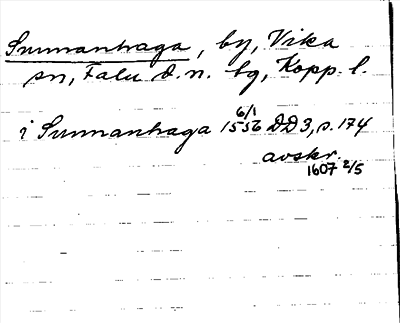 Sunnanhaga, by, Vika
sn, Falu d. n. bg, Kopp. l.
i Sunnanhaga 1556 6/1 DD3, s. 174
avskr.
1607 2/5